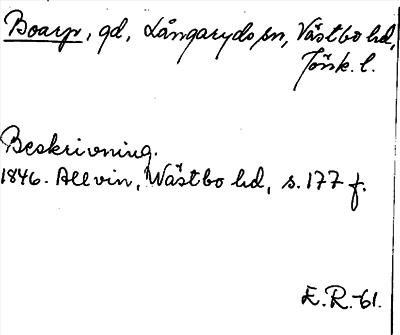 Boarp, gd, Långaryds sn, Västbo hd,
Jönk. l.
Beskrivning.
1846. Allvin, Wästbo hd, s. 177 f.
E.R.-61.